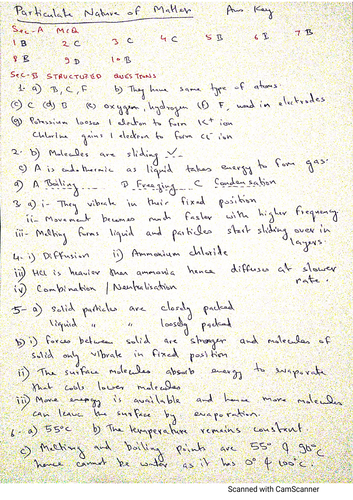 Particulate Nature of Matter Ans Key
Sec-A MCQ
1 B 2 C 3 C 4 C 5 B 6 B 7 B
8 B 9 D 10 B
Sec-B STRUCTURED QUESTIONS
1. a) B, C, F b) They have same type of atoms.
(c) C (d) B (e) oxygen, hydrogen (f) F, used in electrodes
(g) Potassium looses 1 electron to form K+ ion
Chlorine gains 1 electron to form Cl- ion
2. b) Molecules are sliding
c) A is endothermic as liquid takes energy to form gas.
a) A Boiling D Freezing C Condensation
3 a) i- They vibrate in their fixed position
ii- Movement becomes much faster with higher frequency
iii- Melting forms liquid and particles start sliding over in layers.
4. i) Diffusion ii) Ammonium chloride
iii) HCl is heavier than ammonia hence diffuse at slower rate.
iv) Combination / Neutralisation
5- a) solid particles are closely packed
liquid " " loosely packed
b) i) forces between solid are stronger and molecules of
solid only vibrate in fixed position
ii) The surface molecules absorb energy to evaporate
that cools lower molecules
iii) More energy is available and hence more molecules
can leave the surface by evaporation.
6- a) 55°C b) The temperature remains constant
c) Melting and boiling points are 55° & 98°C
hence cannot be water as it has 0° & 100°C.
Scanned with CamScanner